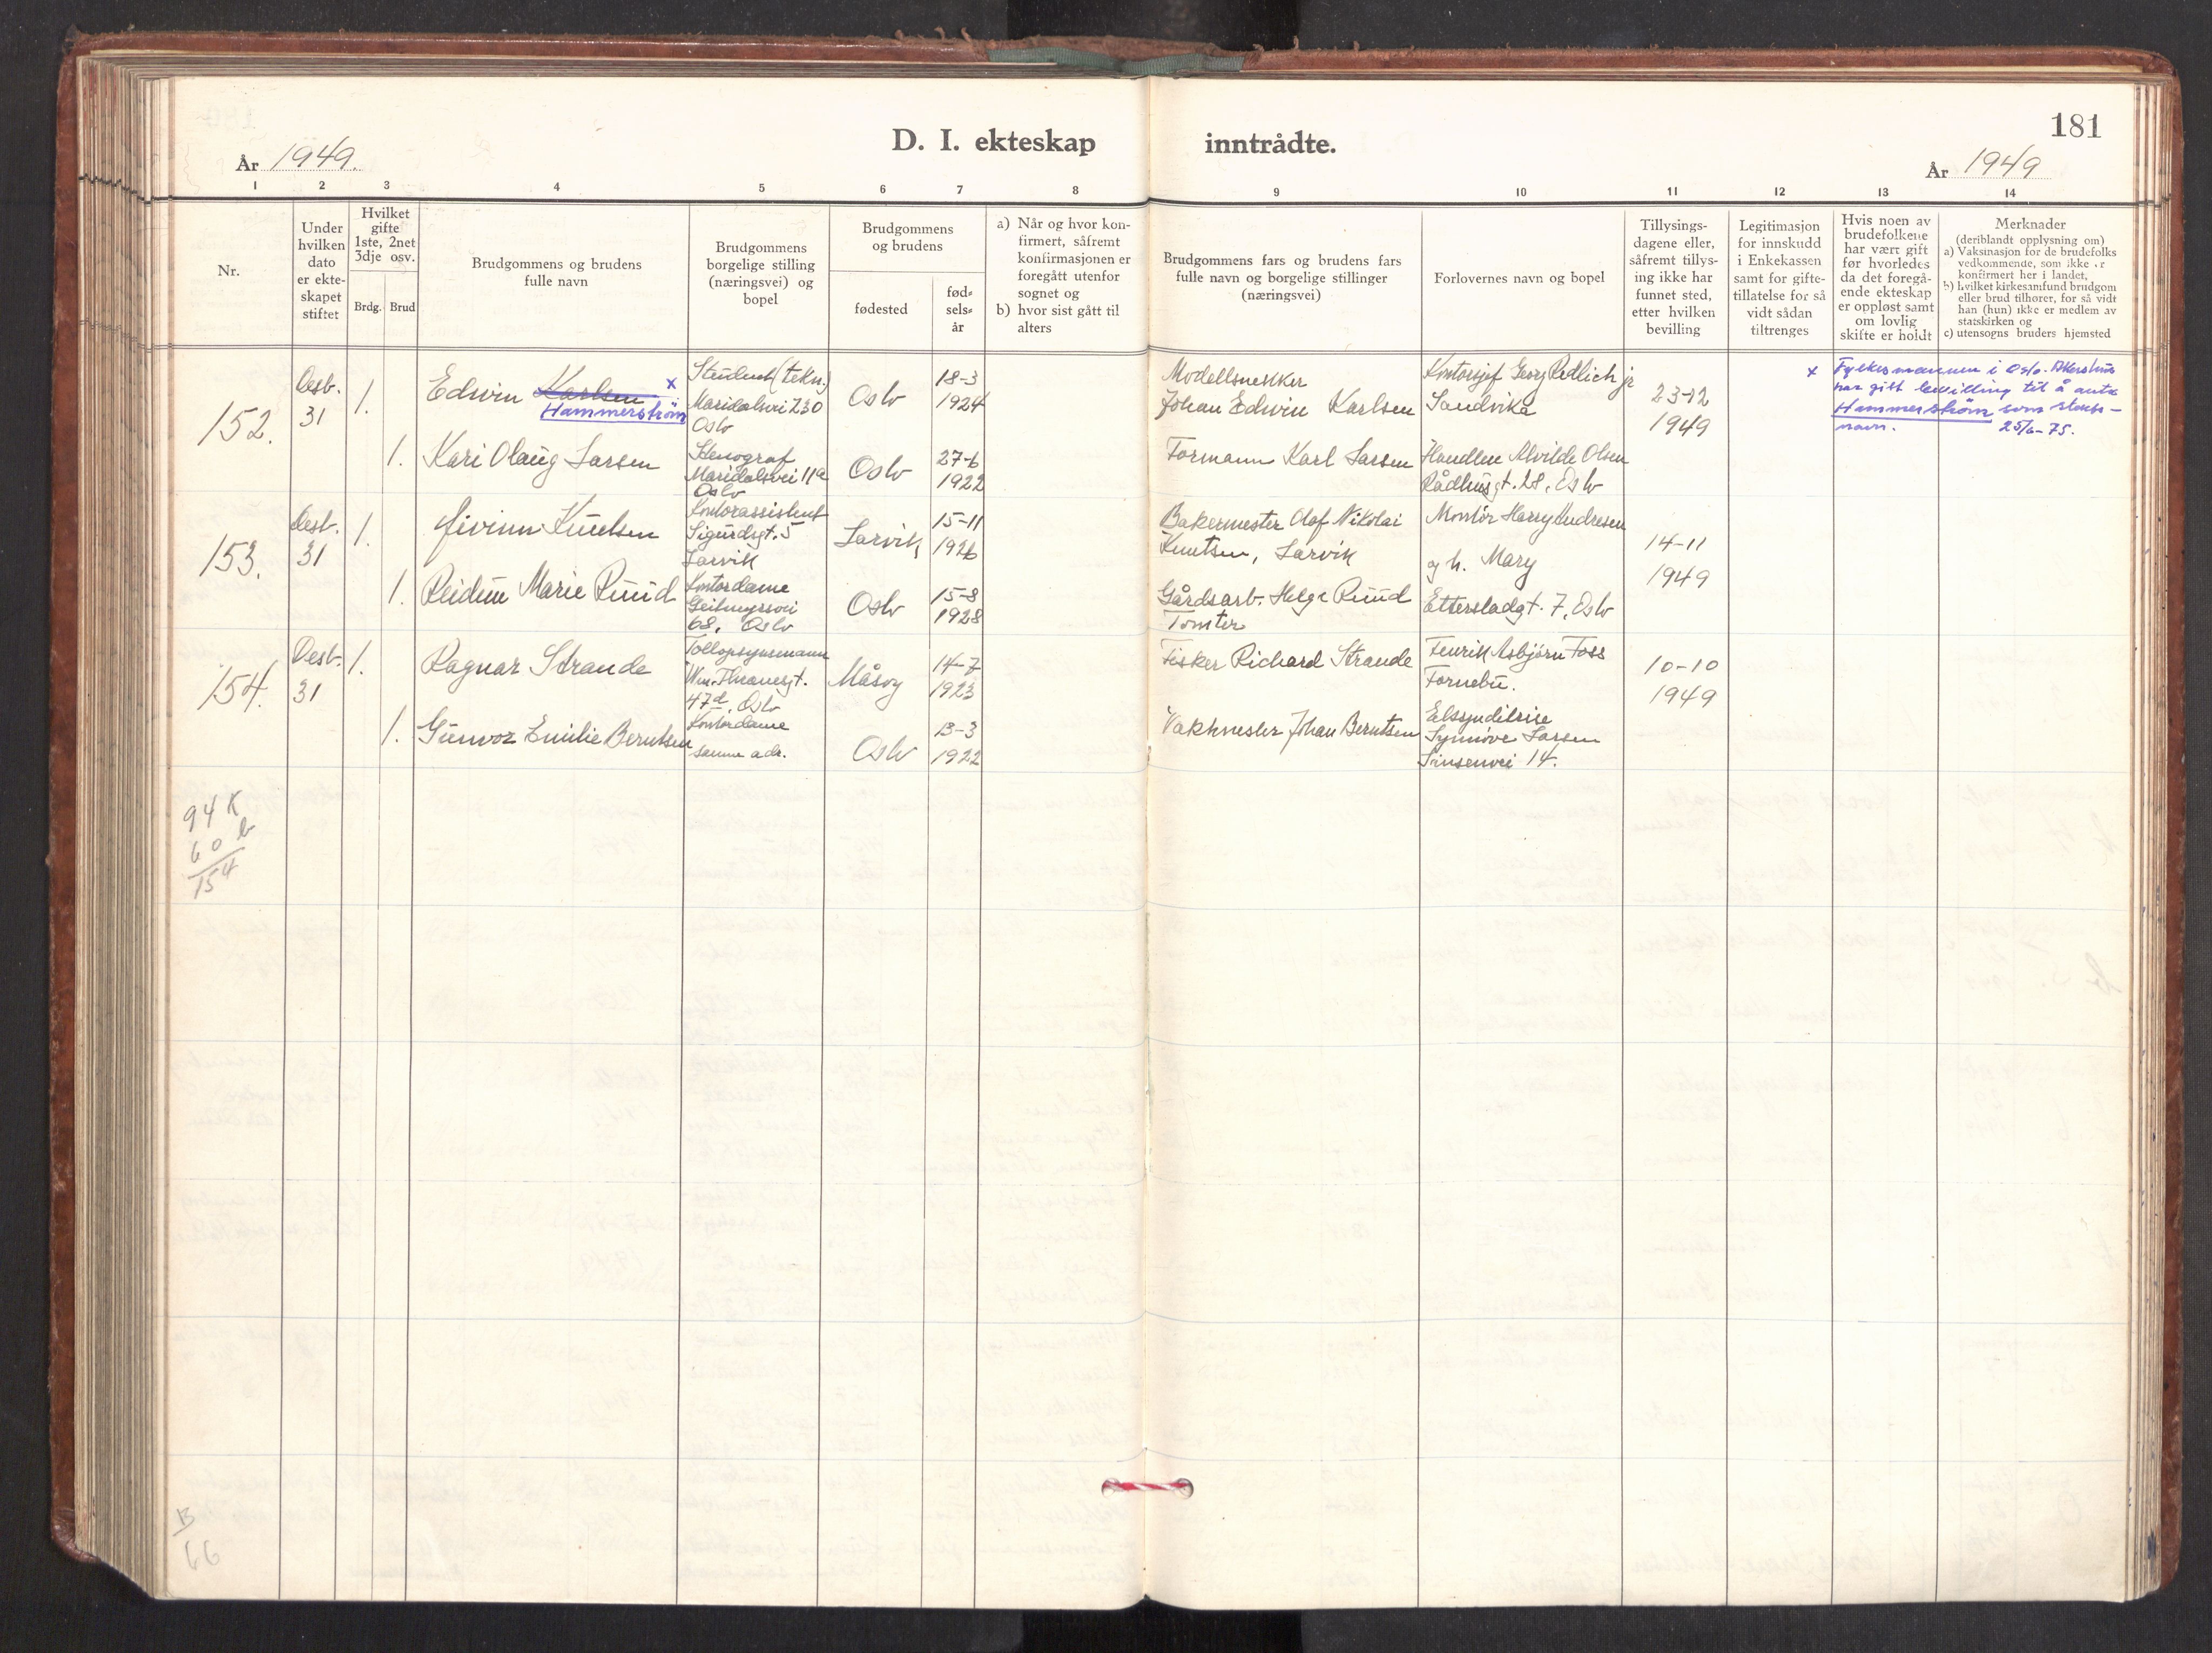 D. I. ekteskap inntrådte.
181
År 1949.
År 1949
1 2 3 4 5 6 7 8 9 10 11 12 13 14
Nr.
Under
hvilken
dato
er ekte-
skapet
stiftet
Hvilket
gifte
1ste, 2net
3dje osv.
Brdg. Brud
Brudgommens og brudens
fulle navn
Brudgommens
borgelige stilling
(næringsvei) og
bopel
Brudgommens
og brudens
fødested
fød-
sels-
år
a) Når og hvor kon-
firmert, såfremt
konfirmasjonen er
foregått utenfor
sognet og
b) hvor sist gått til
alters
Brudgommens fars og brudens fars
fulle navn og borgelige stillinger
(næringsvei)
Forlovernes navn og bopel
Tillysings-
dagene eller,
såfremt tillys-
ing ikke har
funnet sted,
etter hvilken
bevilling
Legitimasjon
for innskudd
i Enkekassen
samt for gifte-
tillatelse for så
vidt sådan
tiltrenges
Hvis noen av
brudefolkene
har vært gift
før hvorledes
da det foregå-
ende ekteskap
er oppløst samt
om lovlig
skifte er holdt
Merknader
(deriblandt opplysning om)
a) Vaksinasjon for de brudefolks
vedkommende, som ikke er
konfirmert her i landet,
b) hvilket kirkesamfund brudgom
eller brud tilhører, for så vidt
han (hun) ikke er medlem av
statskirken og
c) utensogns bruders hjemsted
152.
Desb.
31
1.
Edwin Karlsen x
Hammerstrøm
Student (tekn.)
Maridalsvei 230
Oslo
Oslo
18-3
1924
Modellsnekker
Johan Edwin Karlsen
Kontorsjef Georg Redlich jr
Sandvika
23-12
1949
x Fylkesmannen i Oslo. Akershus
har gitt bevilling til å anta
Hammerstrøm som slekts-
navn. 25/6-75.
1.
Kari Olaug Larsen
Stenograf
Maridalsvei 11a
Oslo
Oslo
27-6
1922
Formann Karl Larsen
Alvilde Olsen
Rådhusgt. 28, Oslo
153.
Desb.
31
1.
Eivinn Knutsen
Kontorassistent
Sigurdsgt. 5
Larvik
Larvik
15-11
1926
Bakermester Olaf Nikolai
Knutsen, Larvik
Montør Harry Andresen
og h. Mary
Etterstadgt. 7, Oslo
14-11
1949
1.
Reidun Marie Ruud
Kontordame
Geitmyrsvei
68, Oslo
Oslo
15-8
1928
Gårdsarb. Helge Ruud
Tomter
154.
Desb.
31
1.
Ragnar Strande
Tollopsynsmann
Wm. Thranesgt.
47d, Oslo
Måsøy
14-7
1923
Fisker Richard Strande
Fenrik Asbjørn Foss
Fornebu.
10-10
1949
1.
Gunvor Emilie Berntsen
Kontordame
samme adr.
Oslo
13-3
1922
Vaktmester Johan Berntsen
Synnøve Larsen
Sinsenvei 14.
94 K
60 b
154
B
66